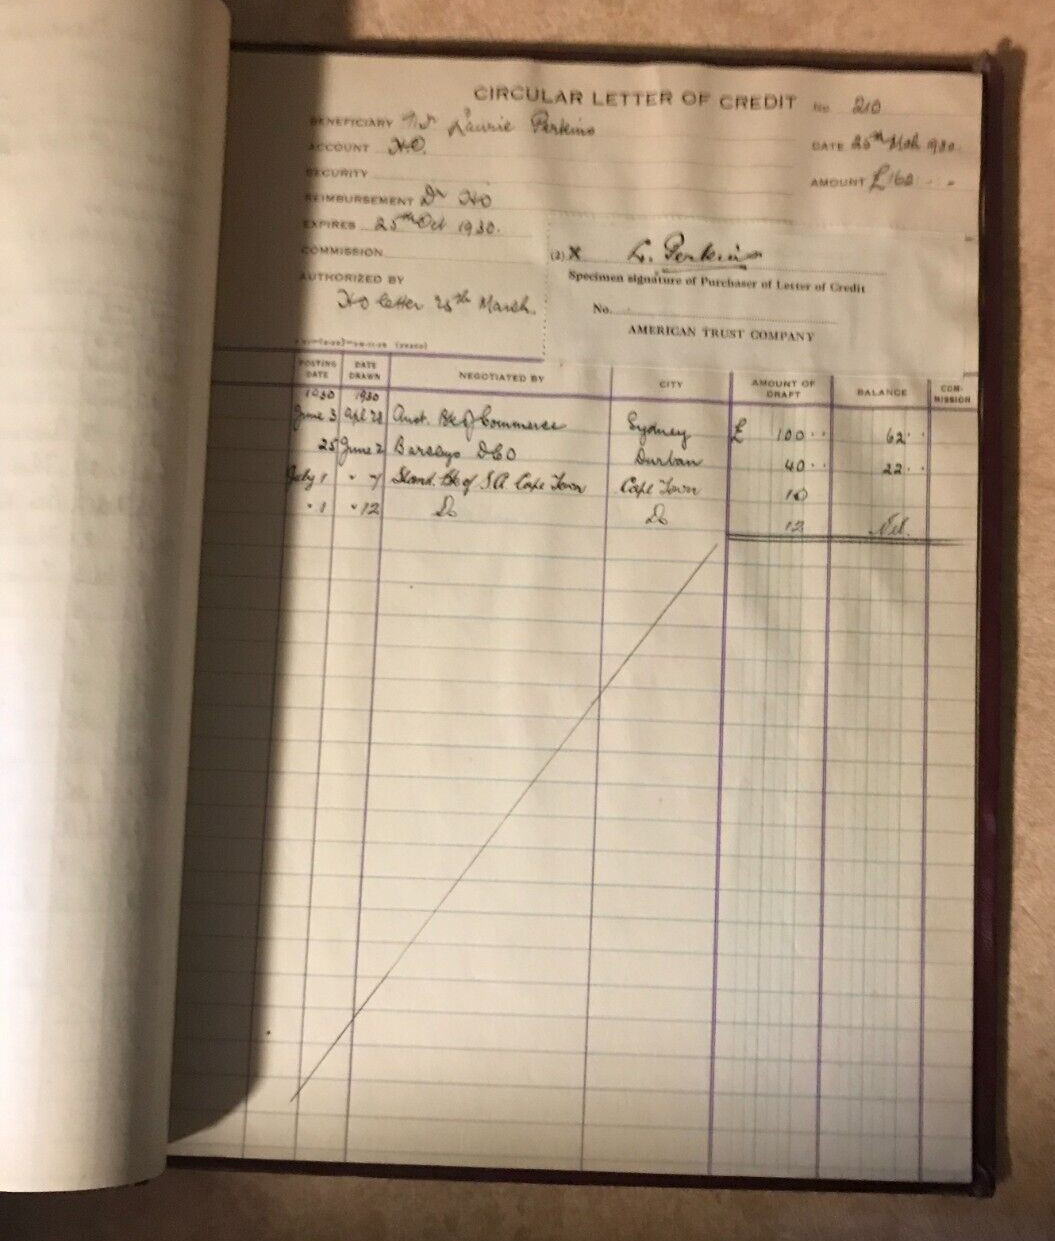 CIRCULAR LETTER OF CREDIT No 210
BENEFICIARY Laurie Perkins
DATE 25th Mch 1930
ACCOUNT H.O.
SECURITY
AMOUNT £162
REIMBURSEMENT Dr HO
EXPIRES 25th Oct 1930.
COMMISSION
(2) X L. Perkins
Specimen signature of Purchaser of Letter of Credit
AUTHORIZED BY
HO letter 25th March.
No.
AMERICAN TRUST COMPANY
POSTING DATE DATE DRAWN NEGOTIATED BY CITY AMOUNT OF DRAFT BALANCE COM-MISSION
1930 1930
June 3 Apl 28 Aust. Bk of Commerce Sydney £ 100 62
25 June 2 Barclays DCO Durban 40 22
July 1 " 7 Stand. Bk of S A Cape Town Cape Town 10
" 1 " 12 Do Do 12 Nil.